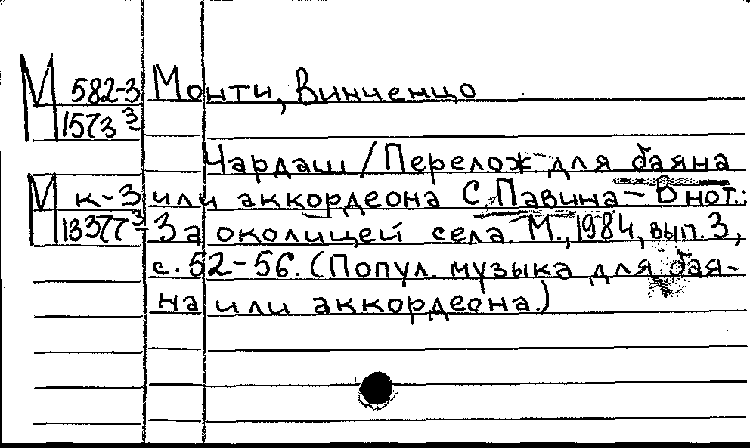 М 582-3 Монти, Винченцо
1573 3
Чардаш / Перелож. для баяна
М к-3 или аккордеона С. Павина – В нот.:
13377-3 За околицей села. М., 1984, вып. 3,
с. 52-56. (Попул. музыка для бая-
на или аккордеона.)